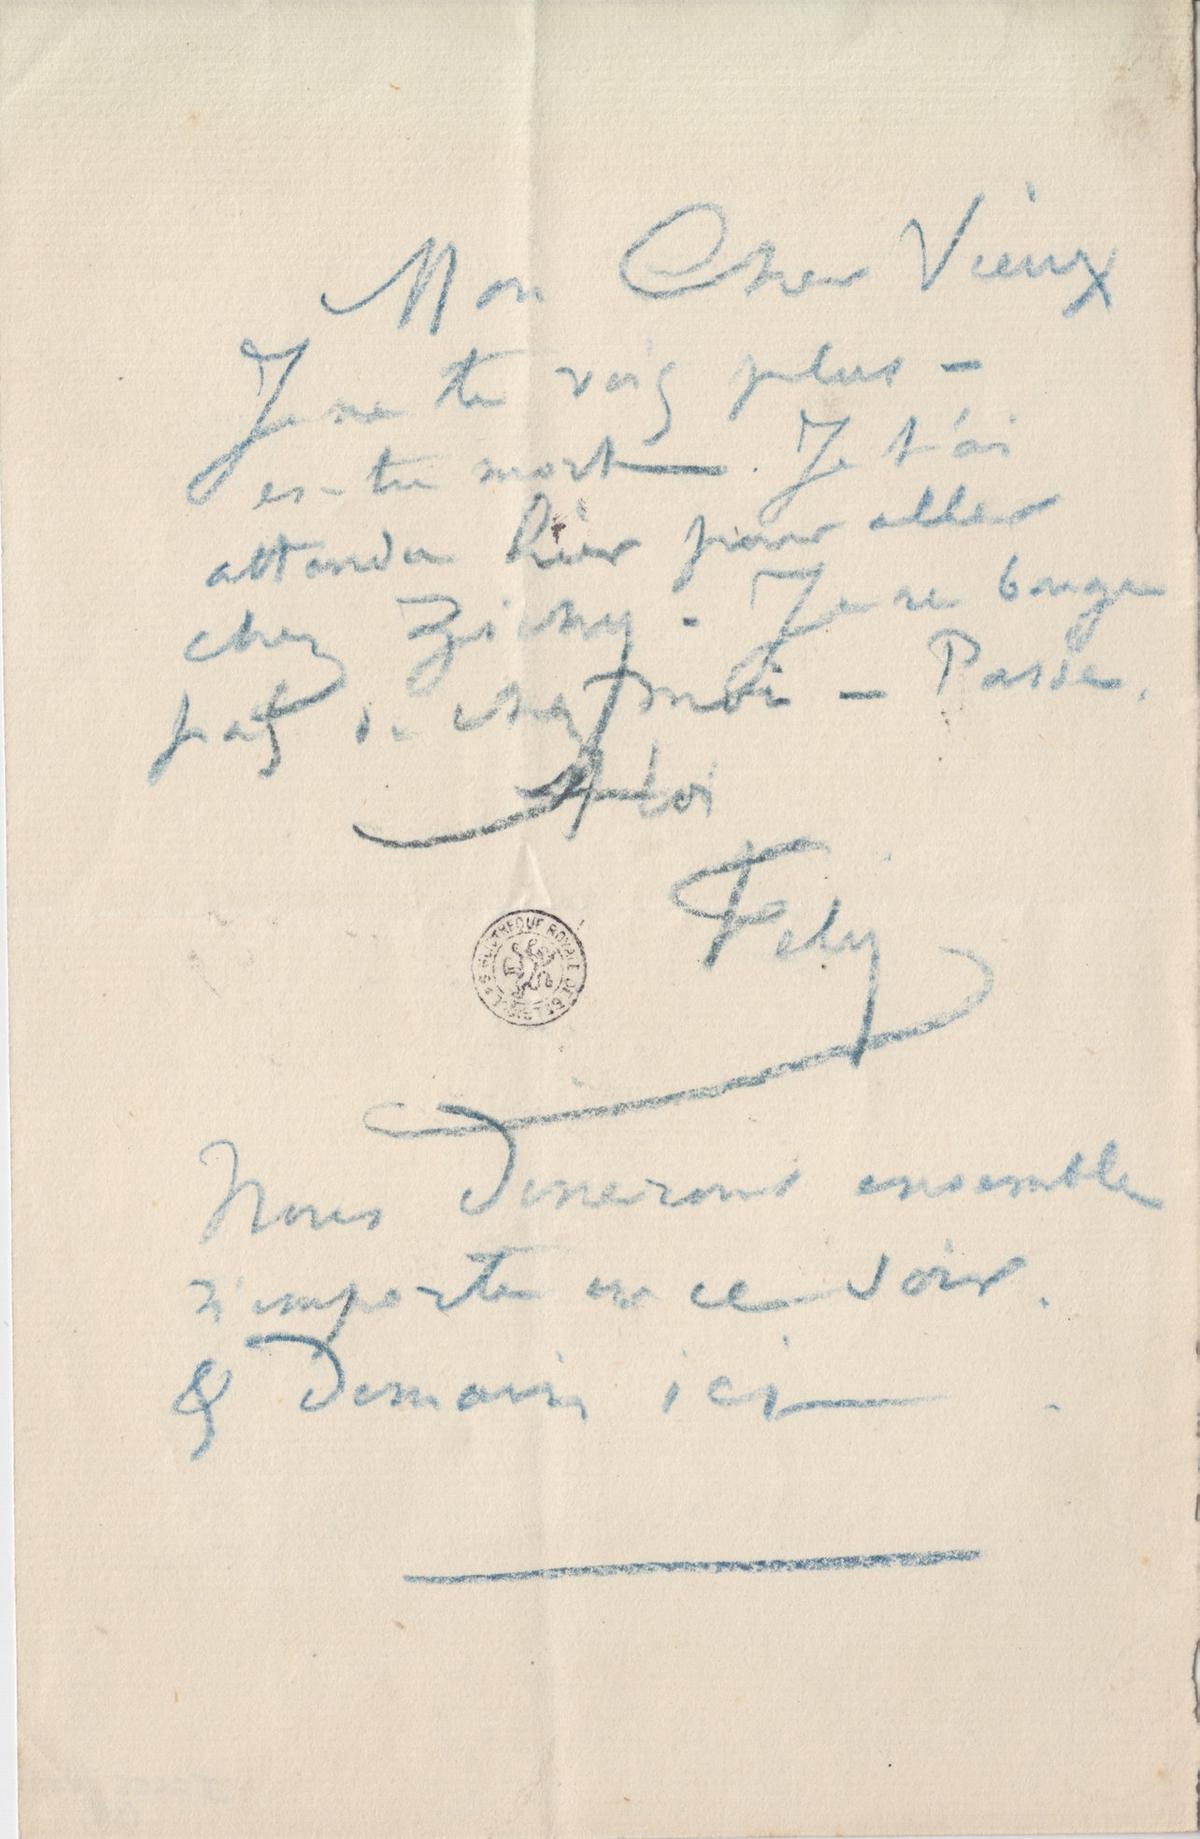 Mon Cher Vieux
Je ne te vois plus –
es-tu mort — . Je t'ai
attendu hier pour aller
chez Zichy - Je ne bouge
pas de chez moi – Passe.
A toi
Fély
BIBLIOTHEQUE ROYALE DE BELGIQUE
Nous dinerons ensemble
n'importe où ce soir.
& Demain ici — .